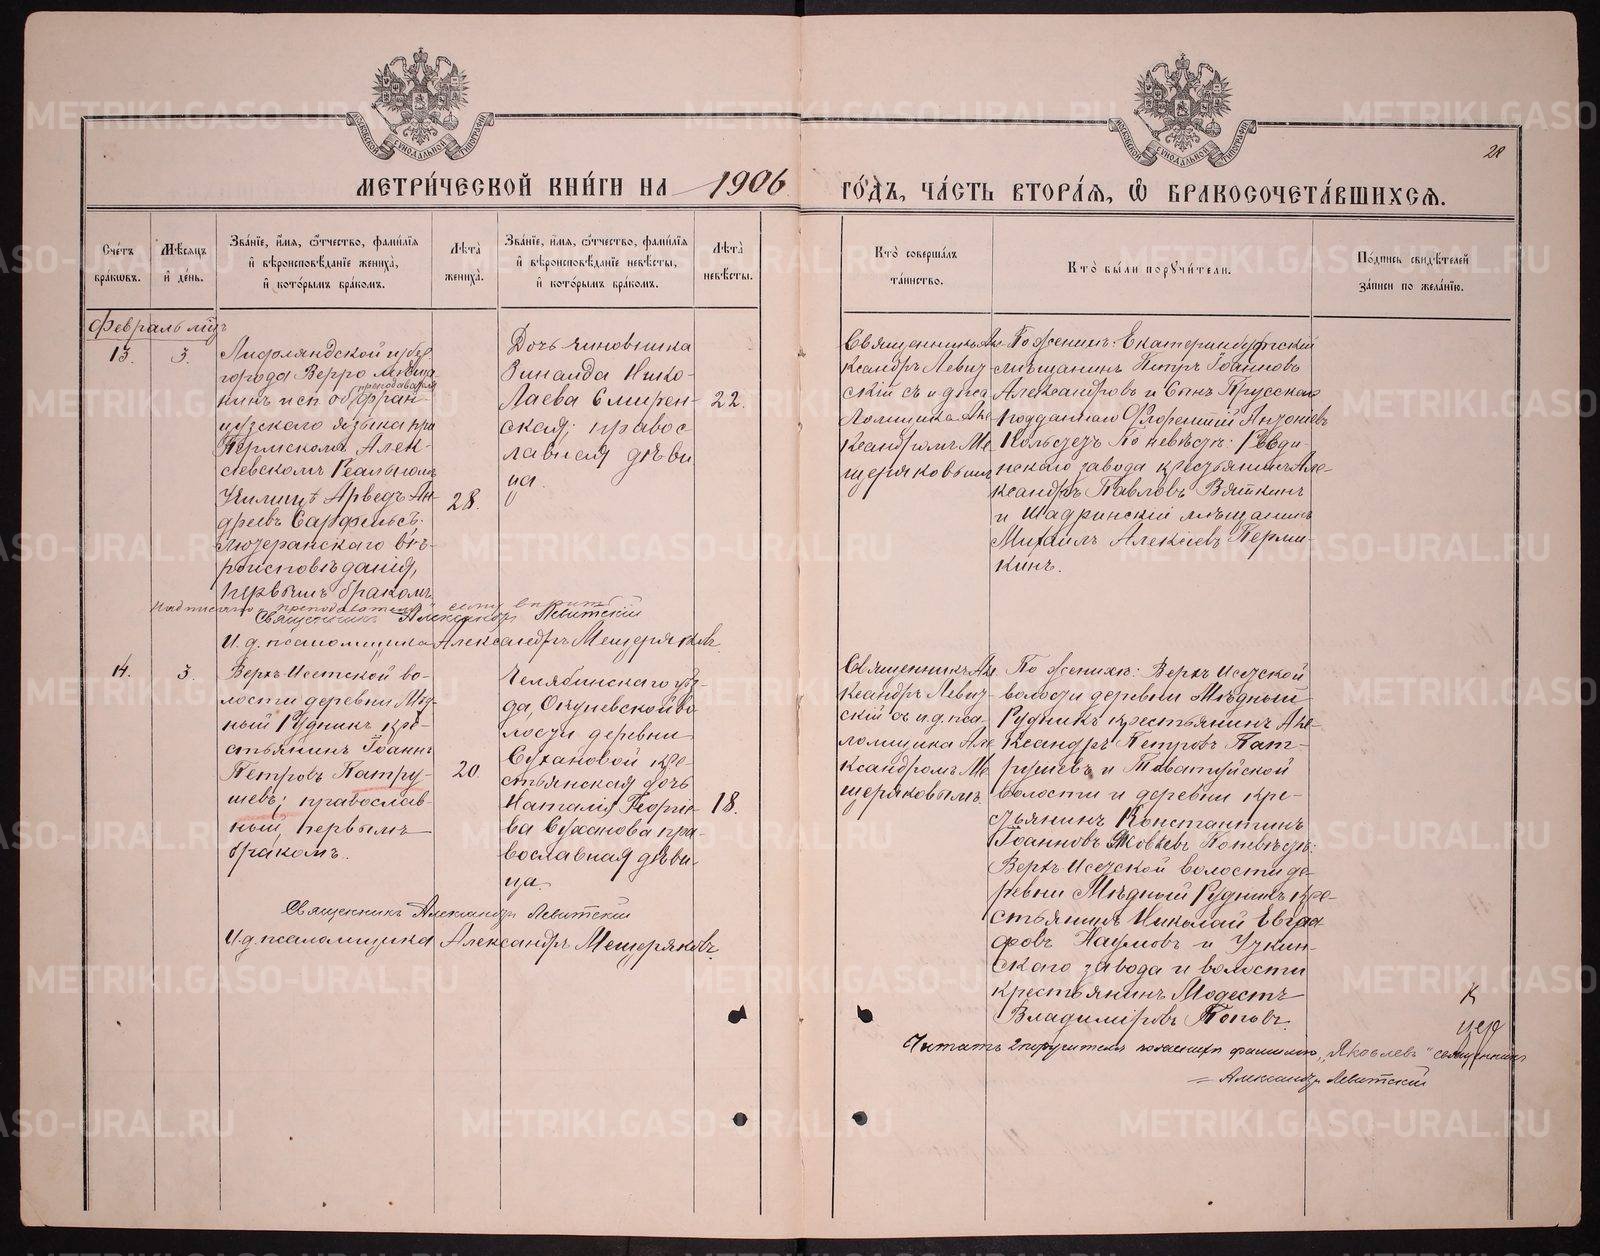 МЕТРИ́ЧЕСКОЙ КНИ́ГИ НА 1906 ГО́ДЪ, ЧА́СТЬ ВТОРА́Я, Ѡ БРАКОСОЧЕТА́ВШИХСЯ.
28
Сче́тъ бра́ковъ.
Мѣ́сяцъ и҆ де́нь.
Зва́нїе, и҆́мя, ѻ҆́тчество, фами́лїя
и҆ вѣроисповѣ́данїе жениха̀,
и҆ кото́рымъ бра́комъ.
Лѣ́та жениха̀.
Зва́нїе, и҆́мя, ѻ҆́тчество, фами́лїя
и҆ вѣроисповѣ́данїе невѣ́сты,
и҆ кото́рымъ бра́комъ.
Лѣ́та невѣ́сты.
Кто̀ соверша́лъ
та́инство.
Кто̀ бы́ли порꙋчи́тели.
По́дпись свидѣ́телей
за́писи по жела́нїю.
Февраль мцъ
13.
3.
Лифляндской губер
города Верро мѣща
нинъ исп. об. преподавателя фран-
цузскаго языка при
Пермскомъ Алек-
сѣевскомъ Реальномъ
Училищѣ Арведъ Ан-
дреевъ Сарфельсъ.
лютеранскаго вѣ-
роисповѣданія,
первымъ бракомъ
28.
Дочь чиновника
Зинаида Нико-
лаева Смирен-
ская; правос
лавная дѣви
ца.
22.
Священникъ Але
ксандръ Левит-
скій съ и.д. пса
ломщика Але
ксандромъ Ме
щеряковымъ
По женихѣ: Екатеринбургскій
мѣщанинъ Петръ Іоанновъ
Александровъ и Сынъ Прусскаго
подданнаго Антоніевъ
По невѣстѣ: Ревди-
нскаго завода крестьянинъ Але-
ксандръ Павловъ Вяткинъ
и Шадринскій мѣщанинъ
Михаилъ Алексіевъ Перми-
кинъ.
Надписано „преподавателя" сему вѣрить
Священникъ Александръ Левитскій
И.д. псаломщика Александръ Мещеряковъ.
14.
3.
Верхъ Исетской во-
лости деревни Мѣд-
ный Рудникъ кре-
стьянинъ Іоаннъ
Петровъ Патру-
шевъ; православ-
ный, первымъ
бракомъ.
20.
Челябинскаго уѣз-
да, Окуневской во
лости деревни
Сухановой кре-
стьянская дочь
Наталія Георгіе-
ва Суханова пра-
вославная дѣви-
ца.
18.
Священникъ Але
ксандръ Левит-
скій съ и.д. пса-
ломщика Але
ксандромъ Ме
щеряковымъ.
По женихѣ: Верхъ Исетской
волости деревни Мѣдный
Рудникъ крестьянинъ Але-
ксандръ Петровъ Пат-
рушевъ и Таватуйской
волости и деревни кре-
стьянинъ Константинъ
Іоанновъ Яковлевъ По невѣстѣ:
Верхъ Исетской волости де-
ревни Мѣдный Рудникъ кре-
стьянинъ Николай Евгра-
фовъ Наумовъ и Уткин-
скаго завода и волости
крестьянинъ Модестъ
Владиміровъ Поповъ.
Священникъ Александръ Левитскій
И.д. псаломщика Александръ Мещеряковъ.
Читать 2 поручителя фамилію „Яковлевъ" священникъ
Александръ Левитскій
METRIKI.GASO-URAL.RU